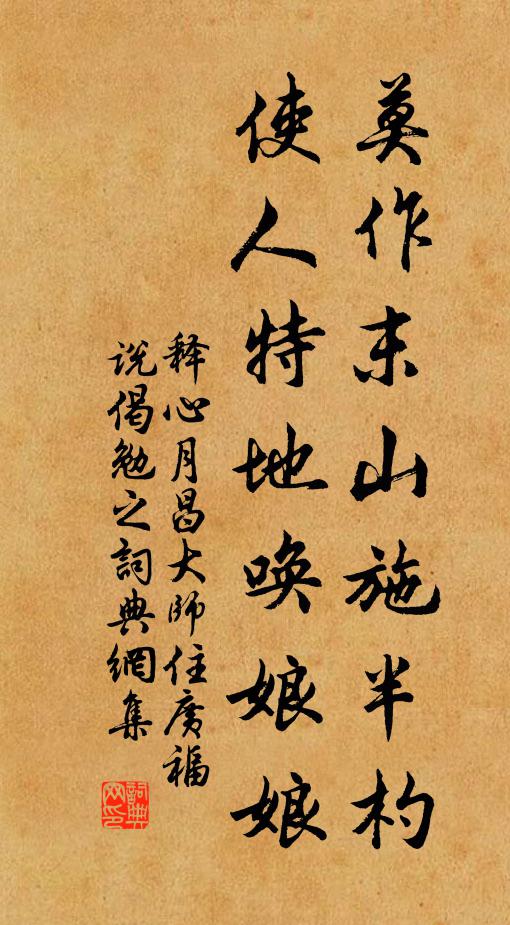 莫作末山施半杓
使人特地喚娘娘
释心月昌大師住廣福
说偈勉之詞典網集
詞典网印